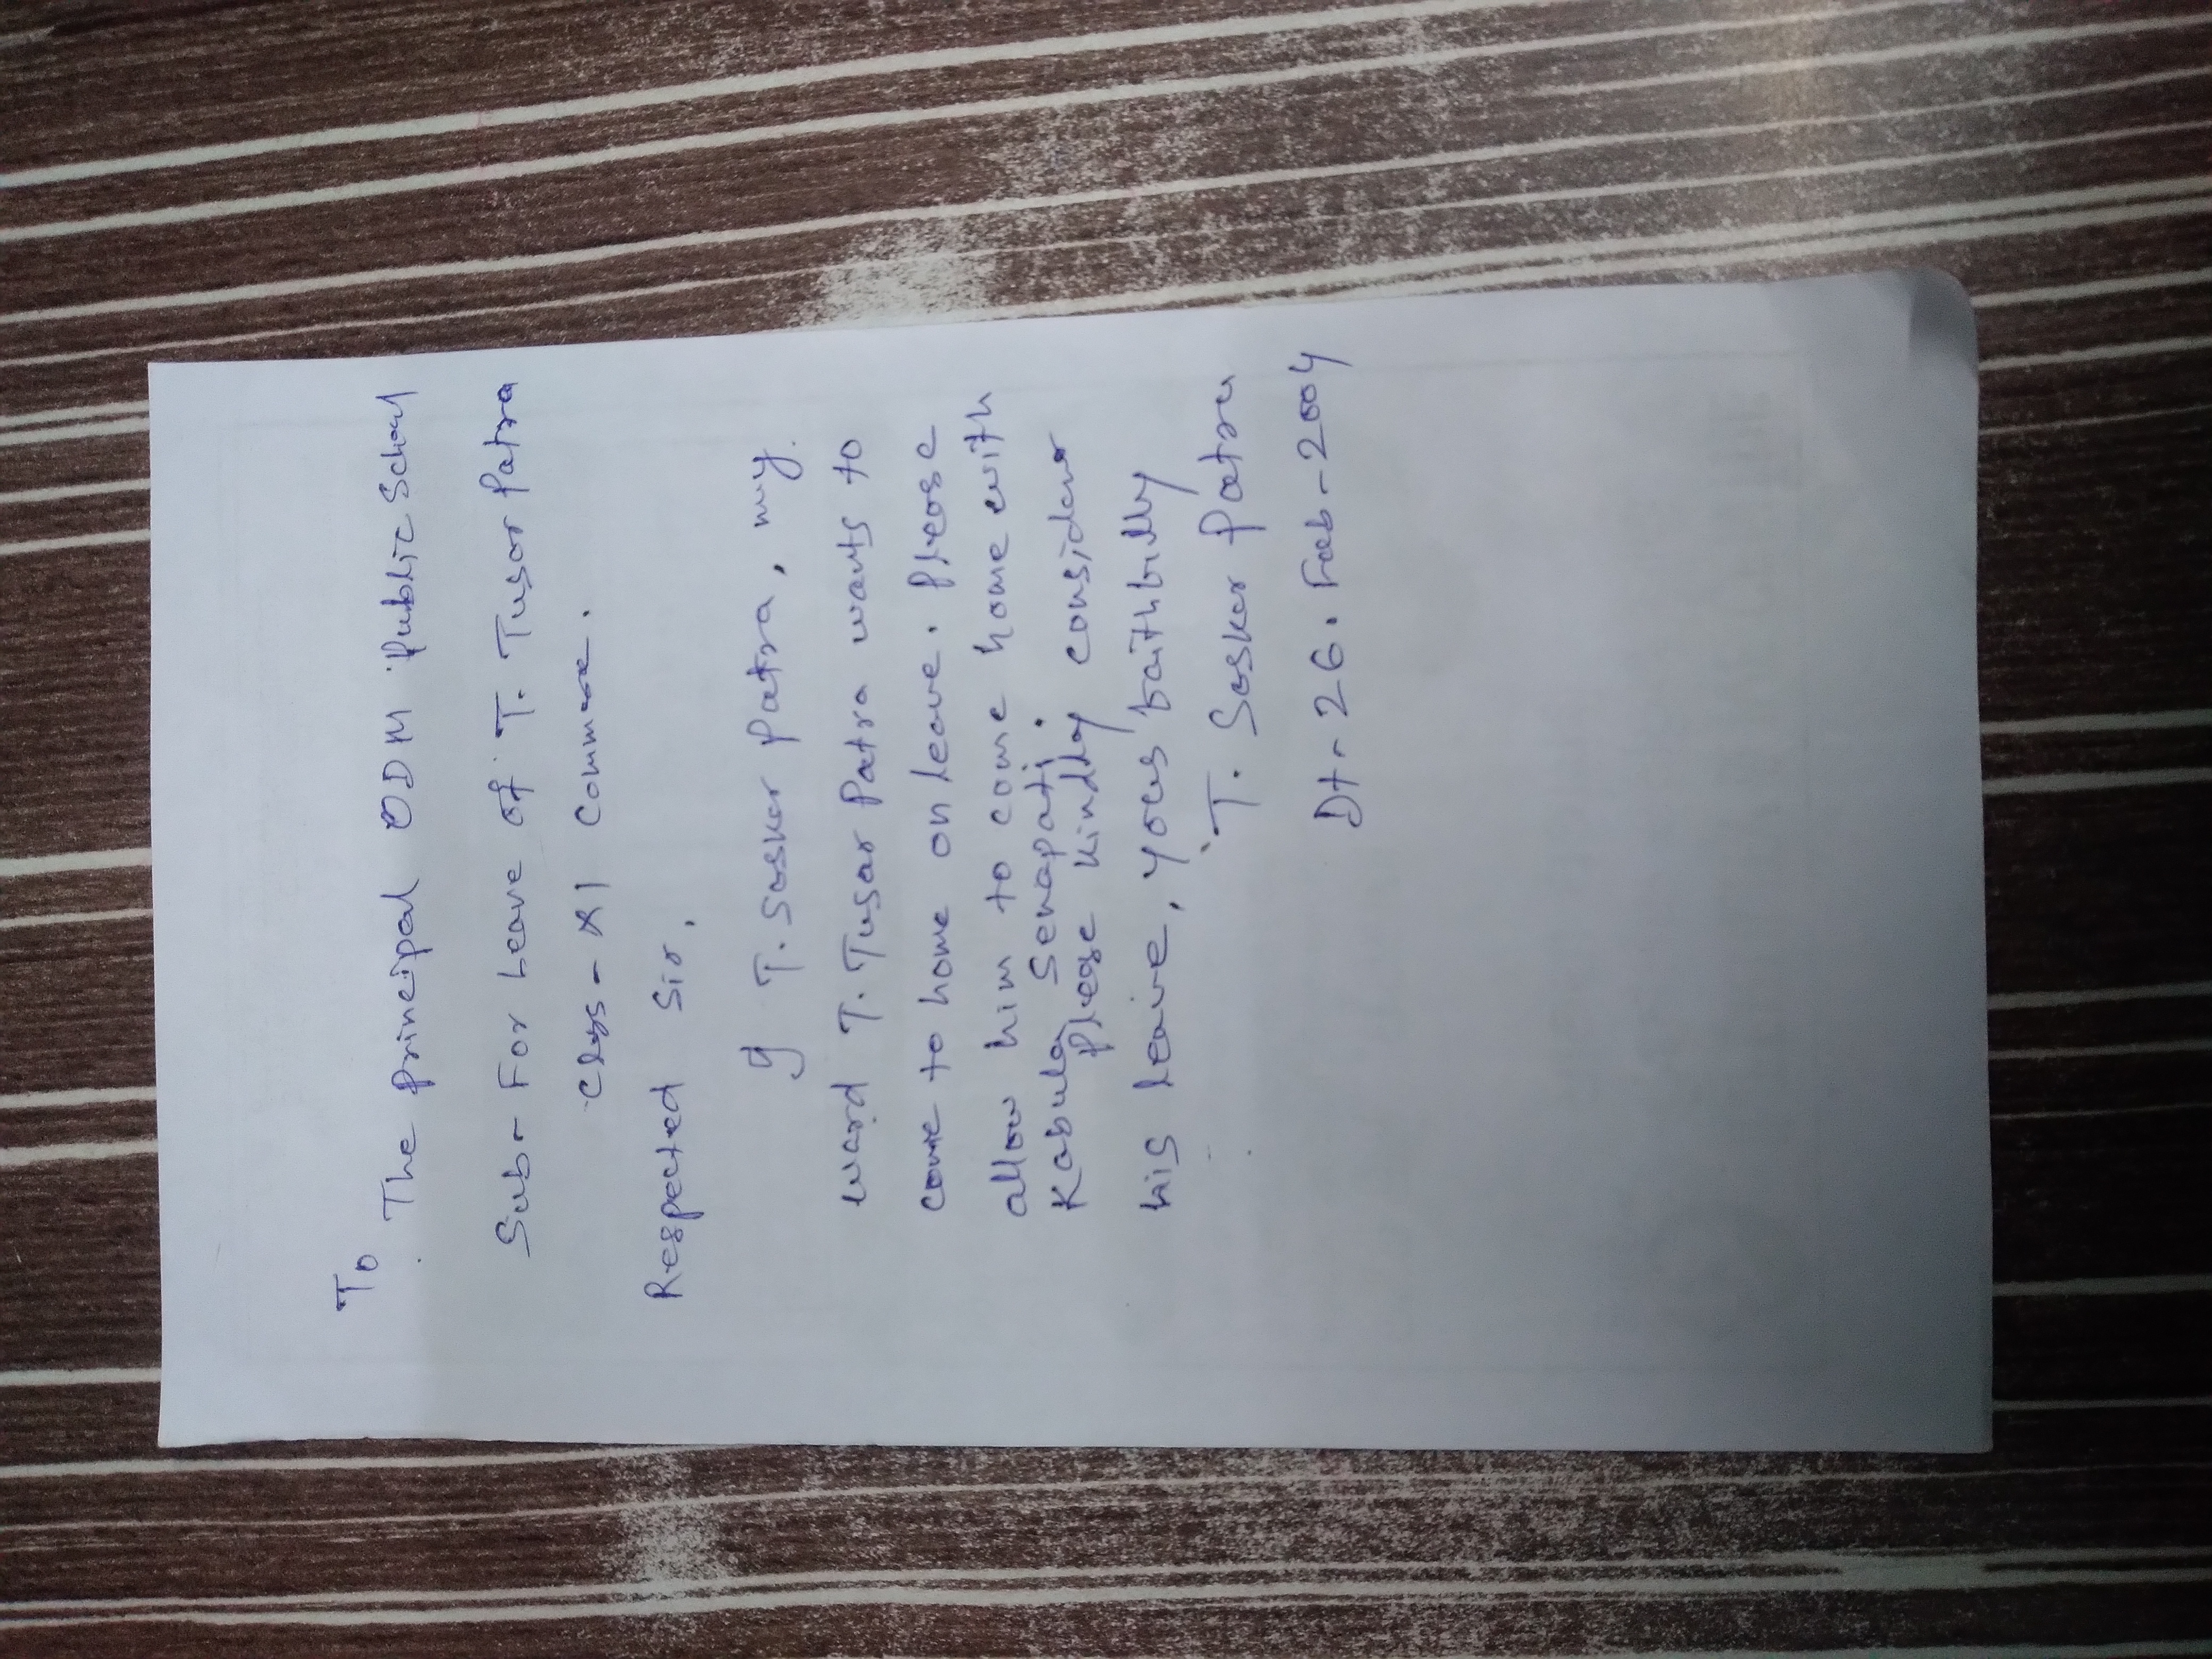 To
The Principal ODM Public School
Sub- For Leave of T. Tusar Patra
Class - XI Commerce.
Respected Sir,
I T. Saskar Patra, my
ward T. Tusar Patra wants to
come to home on leave. Please
allow him to come home with
Kabula Senapati.
Please kindly consider
his leave, yours faithfully
T. Saskar Patra
Dt- 26. Feb- 2004